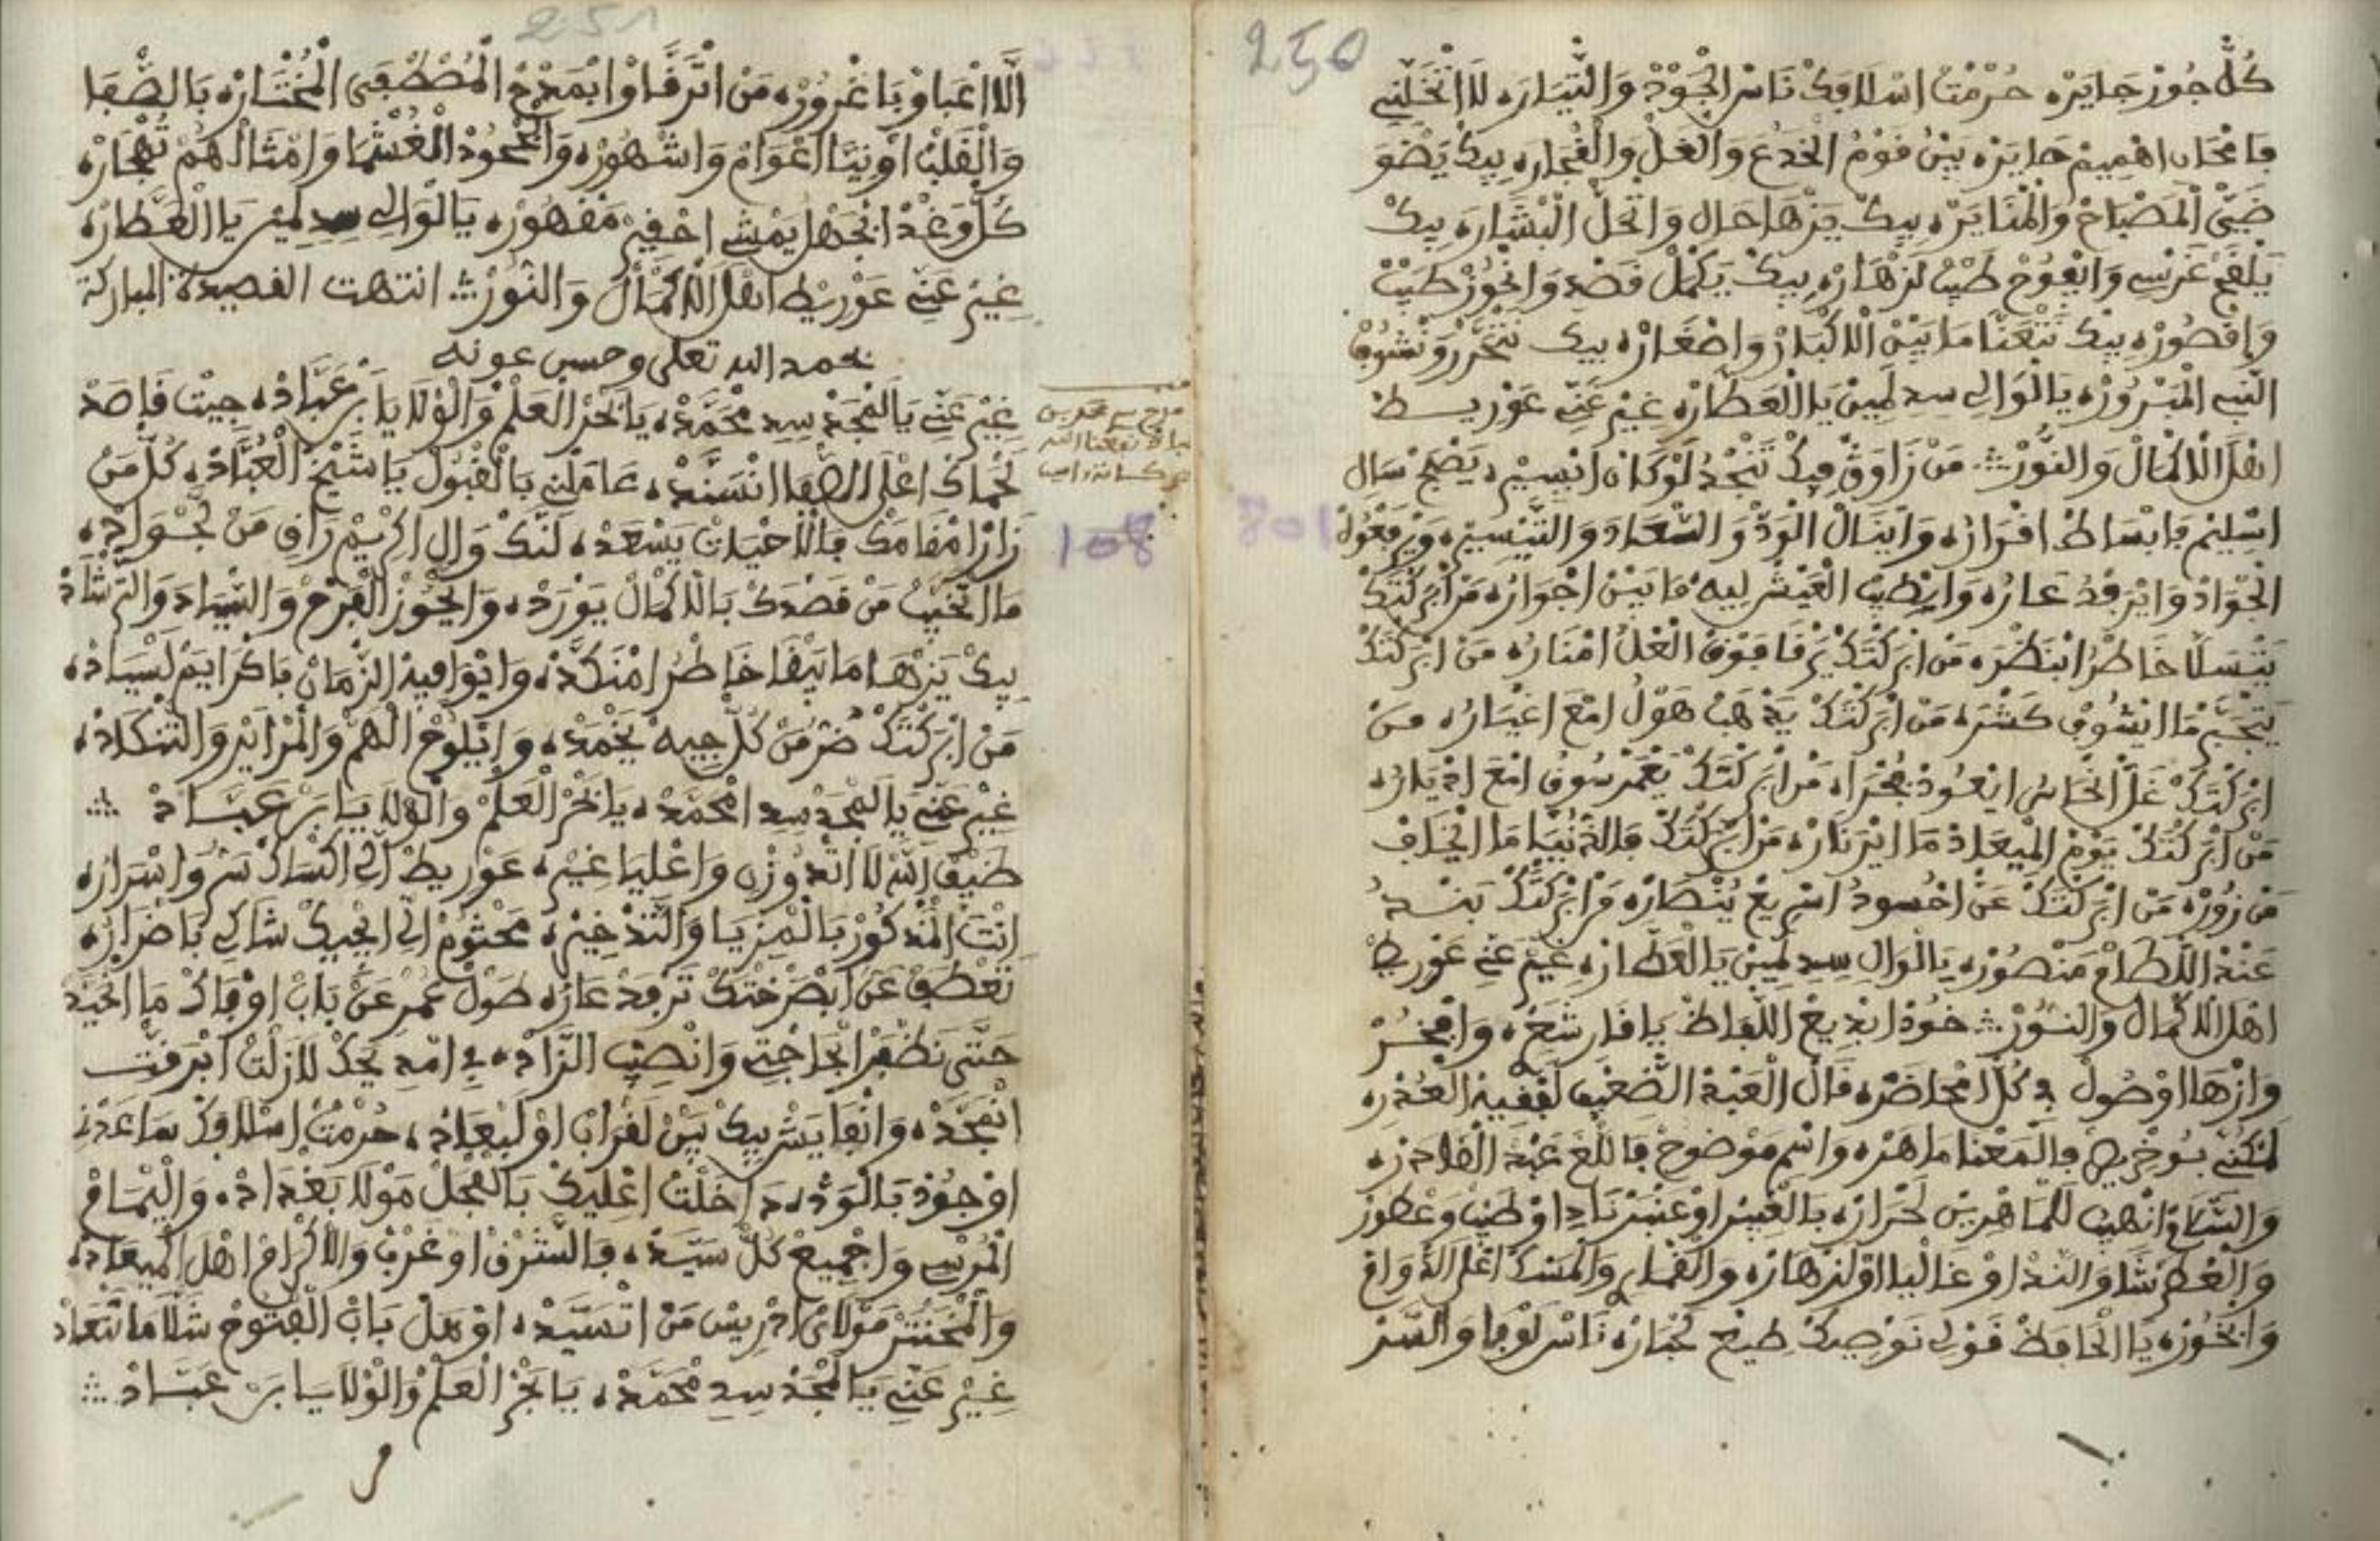 250
كُلّْ جُورْ جَايَرْه حُرْمْتْ اسْلَافِكْ نَاسْ الْجُودْ وَالتِّيَارَه لَا اتْخَلِّنِي
فَامْحَانْ اهْمِيمْ حَايَرْه بِينْ قَوْمْ الخَدْعْ وَالْغَلْ وَالْفُجَارَه بِيكْ يَضْوَ
ضَيّْ الْمَصْبَاحْ وَالْمْنَايَرْه بِيكْ يَزْهَا حَال وَاتْحَلّْ الْبْشَارَه بِيكْ
يَلْقَحْ غَرْسِي وَايْفُوحْ طَيْبْ لَزْهَارْه بِيكْ يَكْمَلْ قَصْدِ وَانْجُوزْ طَيْبْ
وَاقْصُورْه بِيكْ نَتْعَنَّا مَا بَيْنْ الَاكْبَارْ وَاصْغَارْه بِيكْ نَتْحَرَّرْ وَنْشُوفْ
النّبِي الْمَبْرُورْه يَا الْوَالِي سِدِ لَمِينْ يَا الْعَطَّارْه غِيرْ عَنِّ عَوْرِيـط
اهْلَ الَاكْمَالْ وَالنُّورْ ∴ مَنْ زَاوَقْ فِيكْ تَنْجْدُ لَوْ كَانْ اتْسِيرْ، يَصْبَحْ سَالِ
اسْلِيمْ فَابْسَاطْ افْرَارُه وَايْنَالْ الْوَدّْ وَالسَّعَادَ وَالتَّيْسِيرْ، وَيَرَفْعُوهْ
الْجْوَادْ وَايْرَفْدُ عَارُه وَايْطِيبْ الْعَيْشْ لِيهْ مَا بَيْنْ اجْوَارُه مَنْ ابْرَكْتَكْ
يَتْسَلَّا خَاطْرُ ابْنَظْرَه مَنْ ابْرَكْتَكْ يَرْقَا فَوْقْ الْعْلُ امْنَارُه مَنْ ابْرَكْتَكْ
يَتْجَبَّرْ مَا ايْشُوفْ كَسْرَه مَنْ ابْرَكْتَكْ يَذْهَبْ هَوْلُ امْعَ اغْيَارُه مـنْ
ابْرَكْتَكْ غَلّْ الْخَايْنْ ايْعُودْ بُخْرَاه مَنْ ابْرَكْتَكْ يَعْمَرْ سُوقُ امْعَ ادْيَارُه
مَنْ ابْرَكْتَكْ يَوْمْ الْمِيعَادْ مَا ايْرَ نَارُه مَنْ ابْرَكْتَكْ فَالدَّنْيَا مَا ايْخَافْ
مَنْ زُورْه مَنْ ابْرَكْتَكْ عَنْ احْسُودُ اسْرِيعْ يُنْصَارْه مَنْ ابْرَكْتَكْ بَنْـدُ
عَنْدْ اللّطَامْ مَنْصُورْه يَا الْوَالِ سِدِ لَمِينْ يَا الْعَطَّارْه غِيرْ عَنِّ عَوْرِيطْ
اهْلَ الَاكْمَالْ وَالنُّورْ ∴ خُودْ ابْدِيعْ اللّفَاظْ يَا قَارِ شَعْرِ، وَافْخَـرْ
وَازْهَا اوْصُولْ فِ كُلّْ امْحَاضَرْه قَالْ الْعَبْدْ الضّعِيفْ لَفْقِيهْ الْعُذْرِه
لَكْنِّ بُوخْرِيصْ فَالْمَعْنَا مَاهَرْه وَاسْمِ مَوْضُوحْ فَاللّغَ عَبْدْ الْقَادَرْه
وَالسّلَامْ انْهِيبْ لَلْمَاهْرِينْ لَحْرَارْه بَالْعْبِيرْ اوْعَنْبَرْ نَادِ اوْطَيْبْ وَعْطُورْ
وَالْعْطَرْشَا وَالنَّدْ اوْ غَالْيَا اوْ لَزْهَارْه وَالْقْمَارِ وَالْمَسْكْ اعْلَ الدّوَامْ
وَابْخُورْه يَا الْحَافَظْ قَوْلِي نَوْصِيكْ طِيعْ لَخْبَارْه نَاسْ لَوْفَا وَالسّـرْ
251
الَّا اعْبَاوْ بَاغْرُورْه مَنْ اتْرَقَّاوْا ابْمَدْحْ الْمُصْطَفَى الْمُخْتَارْه بَالصّفَا
وَالْقَلْبْ اوْنِيَّا اعْوَامْ وَاشْهُورْه وَالْجْحُودْ الْغُشْمَا وَامْثَالْهُمْ تُهْجَارْه
كُلّْ وَغْدْ ابْجَهْلُ يَمْشِي احْقِيرْ مَقْهُورْه يَا الْوَالِي سِدِ لَمِينْ يَا الْعَطَّارْه
غِيرْ عَنِّي عَوْرِيطْ اهْلَ الَاكْمَالْ وَالنُّورْ ∴ انتهت القصيدة المباركة
بحمد الله تعلى وحسن عونه
غِيرْ عَنِّي يَا لَمْجَدْ سِدِ مْحَمَّدْه يَا بَحْرْ الْعَلْمْ وَالْوْلَا يَا بَنْ عَبَّادْه جِيتْ قَاصَدْ
لَحْمَاكْ اعْلَى الصّفَا انْسَنَّدْه عَامَلْنِي بَالْقْبُولْ يَا شَيْخْ الْعُبَّادْه كُلّْ مَنْ
زَارْ امْقَامَكْ فَالَاحْيَانْ يَسْعَدْه لَنَّكْ وَالِ اكْرِيمْ رَاقِ مَنْ لَجْوَادْه
مَا اتْخَيَّبْ مَنْ قَصْدَكْ بَالَاكْمَالْ يَوْرَدْه وَايْحُوزْ الْفَرْحْ وَالسّيَادَ وَالتّرْشَادْ
بِيكْ يَزْهَا مَا يَبْقَا خَاطْرُ امْنَكَّدْه وَايْوَافِيهْ الزّمَانْ فَاكْرَايَمْ لَسْيَادْه
مَنْ ابْرَكْتَكْ ضُرّْ مَنْ كُلّْ جِيهْ يَخْمَدْه وَايْلُوحْ الْهَمّْ وَالْمْرَايَرْ وَالتَّنْكَادْه
غِيرْ عَنِّي يَا لَمْجَدْ سِدِ امْحَمَّدْه يَا بَحْرْ الْعَلْمْ وَالْوْلَا يَـا بَنْ عَبَّـادْ ∴
ضَيْفْ اللّهْ لَا اتْدُوزْنِ وَاعْلِيَا غِيرْ، عَوْرِيطْ الِّي اكْسَاكْ سَرُّ وَاسْرَارُه
انْتَ الْمْدْكُورْ بَالْمْزِيَا وَالتّدْخِيرْ، مَحْتُومْ الِّي ايْجِيكْ شَاكِي بَاضْرَارُه
تَعْطَفْ عَنْ ابْصَرْخْتَكْ تَرْفَدْ عَارُه طُولْ عُمْرِ عَنْ بَابْ اوْفَاكْ مَا انْحَيَّدْ
حَتَّى نَظْفَرْ ابْحَاجْتِي وَانْصِيبْ الزَّادْه يِدِ امّدِ يَدّكْ لَازَلْتْ انْرَفَّـتْ
انْمَجَّدْه وَانْفَايَشْ بِيكْ بَيْنْ لَقْرَابْ اوْ لَبْعَادْه حُرْمْتْ اسْلَافَكْ سَاعَدْنِ
اوْجُودْ بَالْوَدّْه دَاخَلْتْ اعْلِيكْ بَالْفْحَلْ مَوْلَا بَغْدَادْه وَالْيْمَامْ
الْمُرْسِي وَاجْمِيعْ كُلّْ سَيَّدْه فَالشّرْقْ اوْ غَرْبْ وَالَاكْرَامْ اهْلَ الْمِيعَادْه
وَالْمْحَنَّشْ مَوْلَايْ ادْرِيسْ مَنْ اتْسَيَّدْه اوْهَلْ بَابْ الْفْتُوحْ شَلَّا مَا نَتْعَادْ
غِيرْ عَنِّي يَا لَمْجَدْ سِدِ مْحَمَّدْه يَا بَحْرْ الْعَلْمْ وَالْوْلَا يَا بَنْ عَبَّـادْ ∴
108